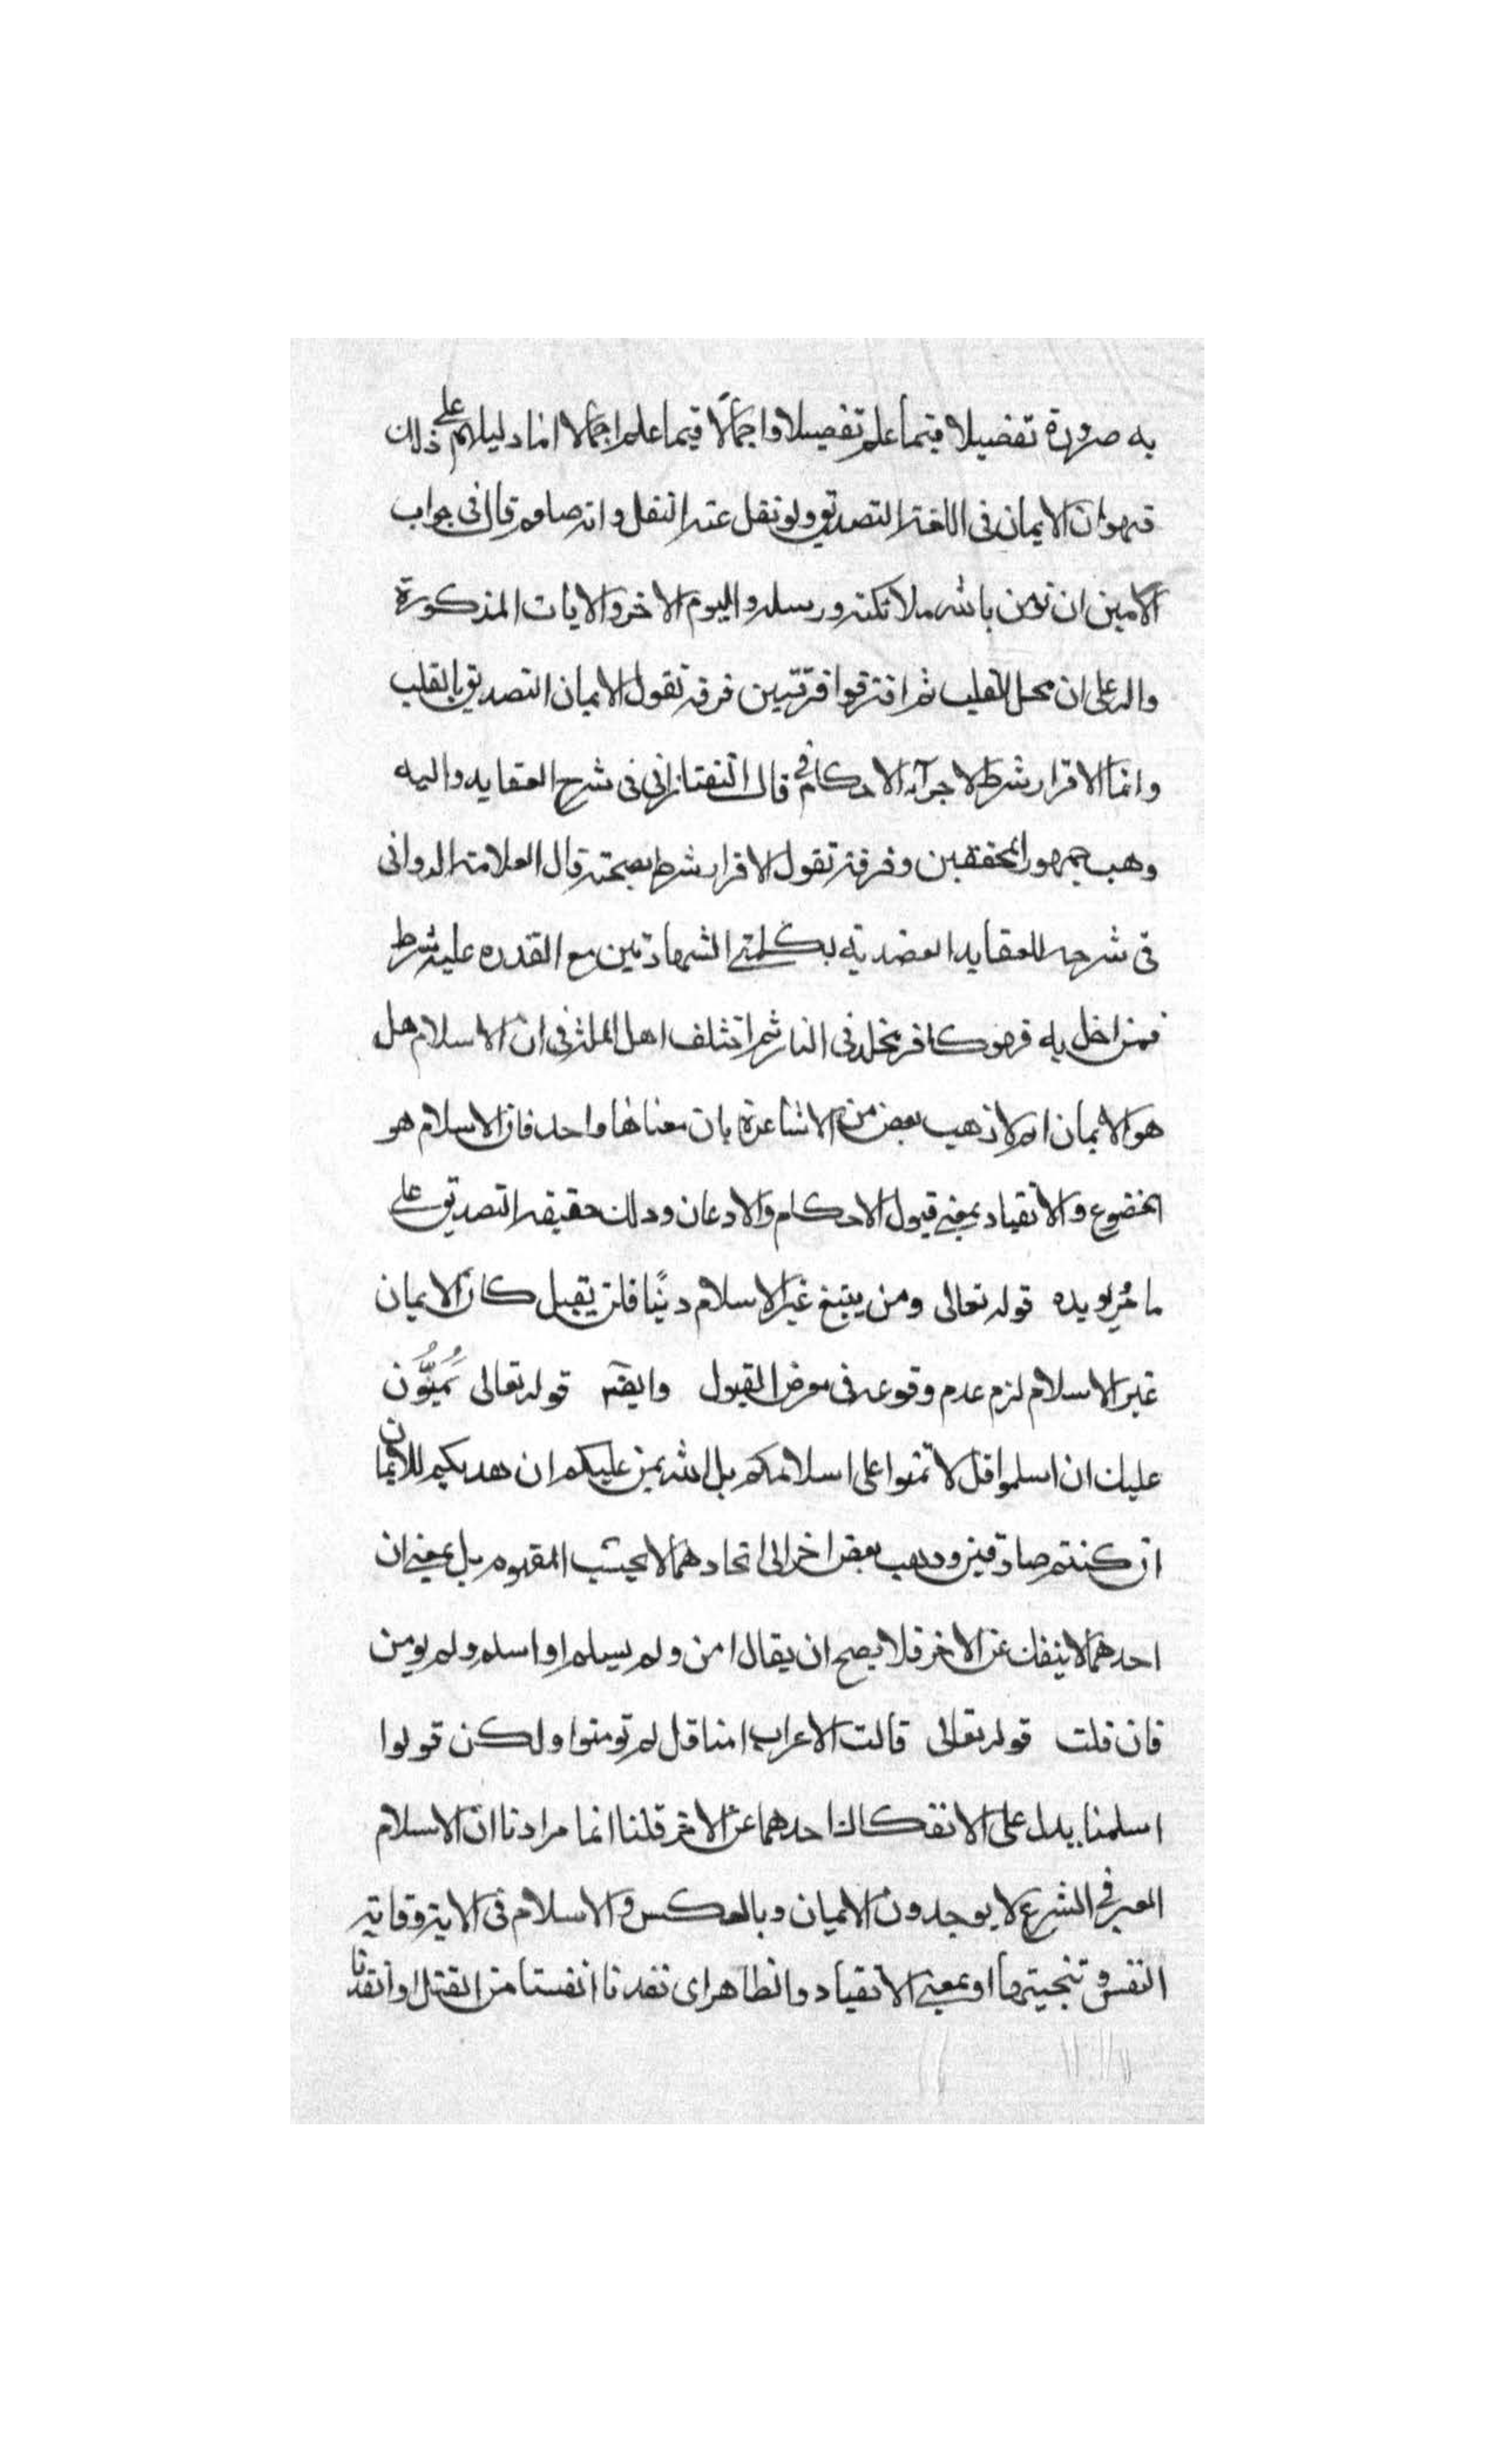 به ضرورة تفصيلا فيما علم تفصيلا واجمالًا فيما علم اجمالا اما دليلهم على ذلك
فهو ان الايمان في اللغة التصديق ولو نقل عنه لنقل وانه صلعم قال في جواب
الامين ان تؤمن بالله ملائكته ورسله واليوم الاخر والايات المذكورة
والد على ان محل القلب ثم افترقوا فرقتين فرقة تقول الايمان التصديق بالقلب
وانما الاقرار شرط لاجرآء الاحكام قال التفتازاني في شرح العقايد واليه
وهب جمهور المحققين وفرقة تقول الاقرار شرط بصحته قال العلامة الدواني
في شرحه للعقايد العضدية بكلمتي الشهادتين مع القدره عليه شرط
فمن اخل به فهو كافر مخلد في النار ثم اختلف اهل الملة في ان الاسلام هل
هو الايمان ام لا ذهب بعض من الاشاعرة بان معناها واحد فان الاسلام هو
الخضوع والانقياد بمعنى قبول الاحكام والادعان ودلك حقيقه التصديق على
ما مر يويده قوله تعالى ومن يبتغ غير الاسلام دينًا فلن يقبل كان الايمان
غير الاسلام لزم عدم وقوعه في معرض القبول وايضًا قوله تعالى يَمُنُّون
عليك ان اسلموا قل لا تمنوا على اسلامكم بل الله يمن عليكم ان هديكم للايمان
ان كنتم صادقين ودهب بعض اخر الى اتحادهما لا بحسب المفهوم بل بمعنى ان
احدهما لا ينفك عن الاخر فلا يصح ان يقال امن ولم يسلم او اسلم ولم يومن
فان قلت قوله تعالى قالت الاعراب امنا قل لم تومنوا ولكن قولوا
اسلمنا يدل على الانفكاك احدهما عن الاخر قلنا انما مرادنا ان الاسلام
المعبر في الشرع لا يوجد دون الايمان وبالعكس والاسلام في الاية وقاية
النفس وتنجيتها او بمعنى الانقياد والظاهر اى نفدنا انفسنا من القتل او انقدنا